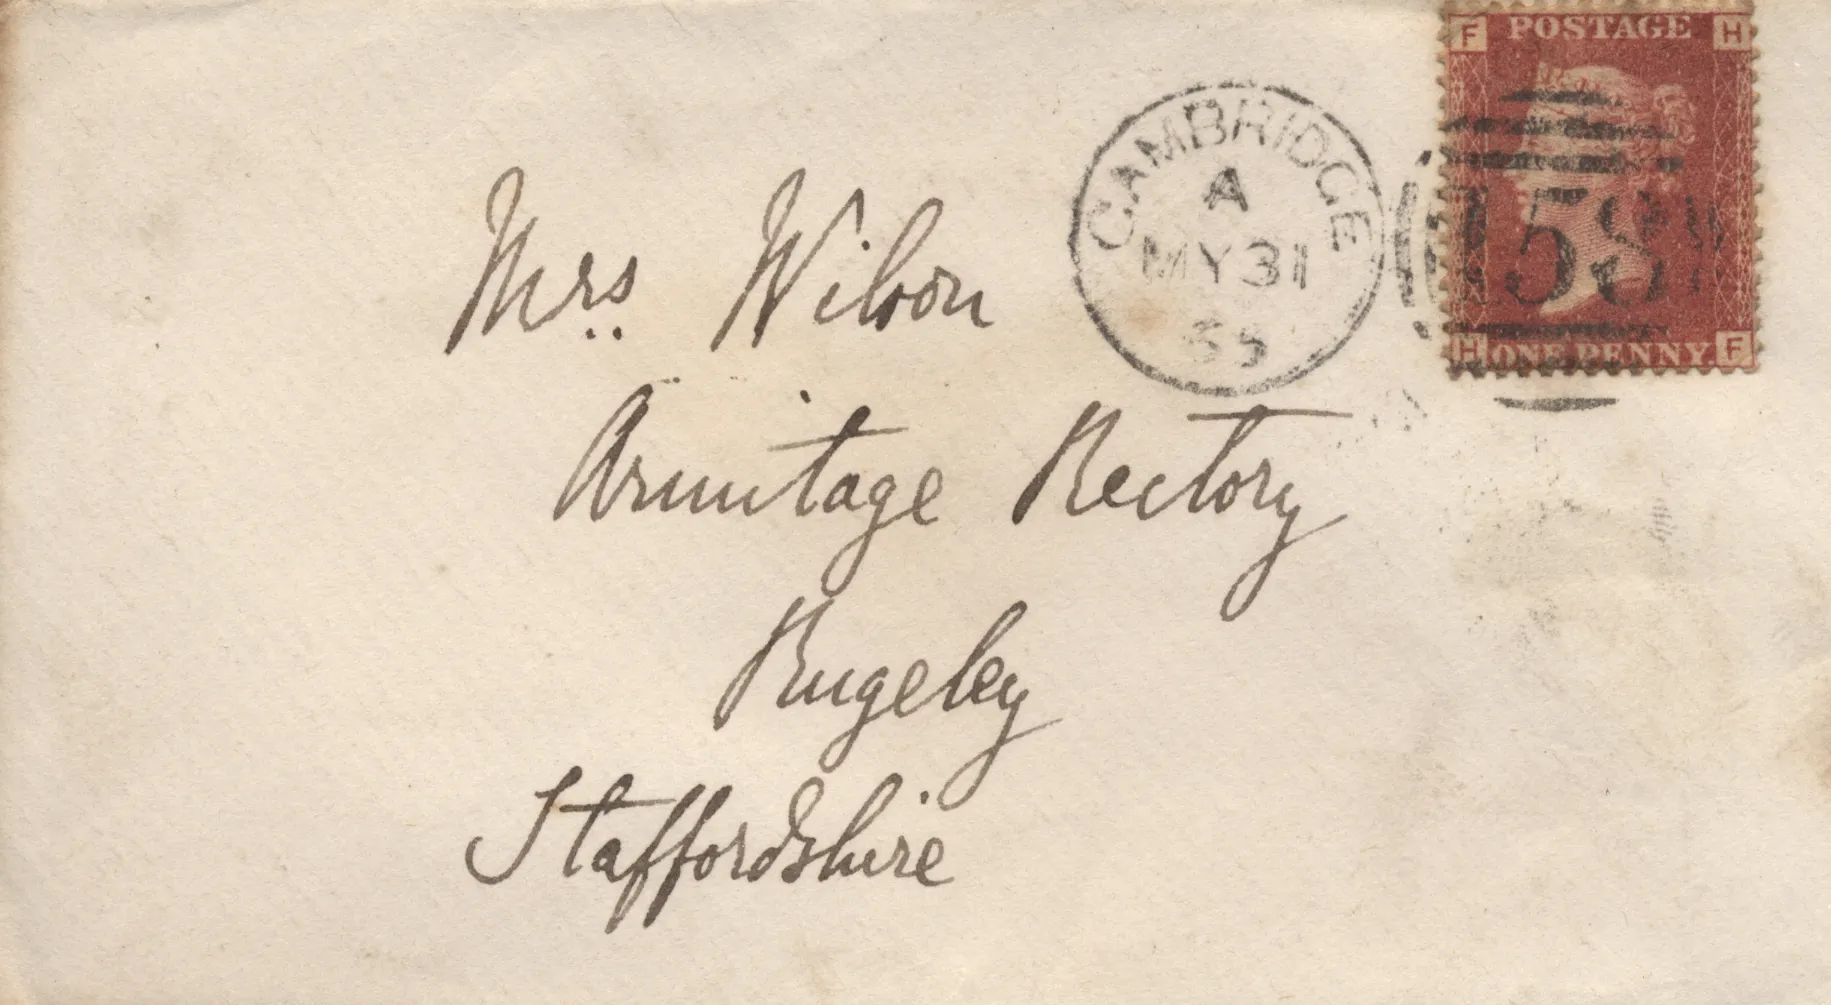 F POSTAGE H
CAMBRIDGE
A
MY 31
65
158
H ONE PENNY F
Mrs. Wilson
Armitage Rectory
Rugeley
Staffordshire